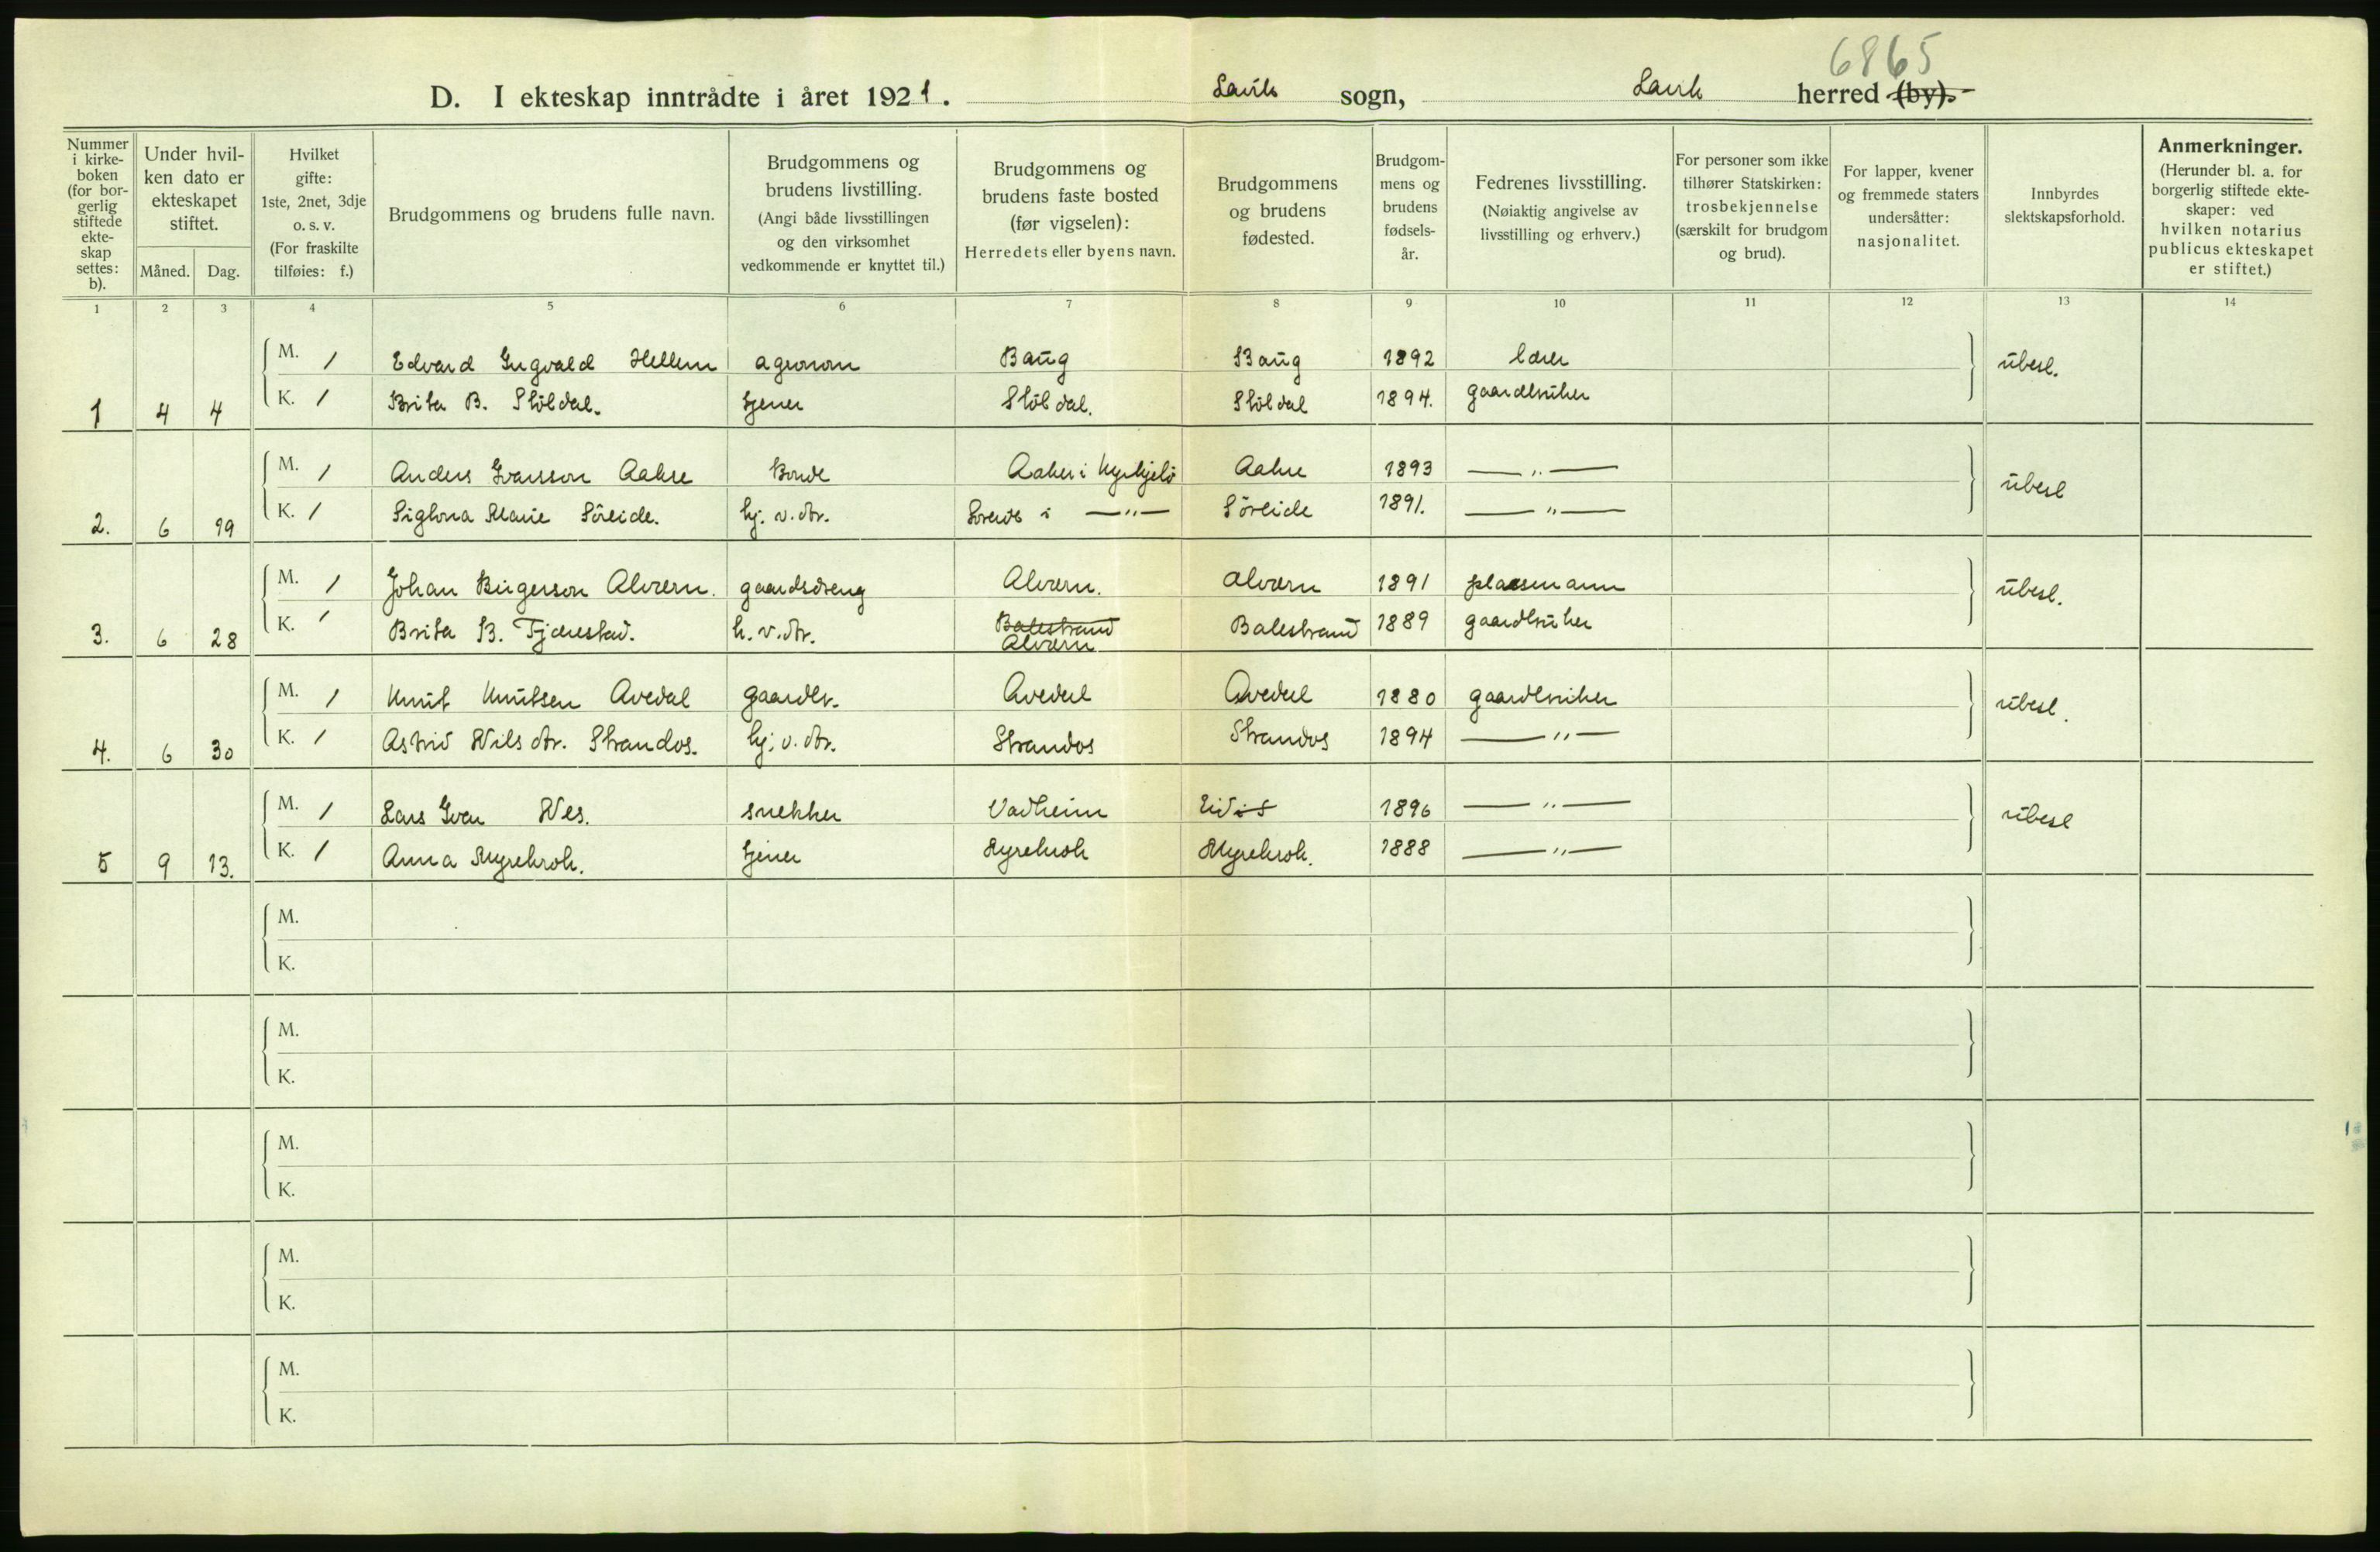 6865
D. I ekteskap inntrådte i året 1921. Lavik sogn, Lavik herred (by).
Nummer i kirke-boken (for bor-gerlig stiftede ekte-skap settes: b).
Under hvil-ken dato er ekteskapet stiftet.
Måned. Dag.
Hvilket gifte: 1ste, 2net, 3dje o. s. v. (For fraskilte tilføies: f.)
Brudgommens og brudens fulle navn.
Brudgommens og brudens livstilling. (Angi både livsstillingen og den virksomhet vedkommende er knyttet til.)
Brudgommens og brudens faste bosted (før vigselen): Herredets eller byens navn.
Brudgommens og brudens fødested.
Brudgom-mens og brudens fødsels-år.
Fedrenes livsstilling. (Nøiaktig angivelse av livsstilling og erhverv.)
For personer som ikke tilhører Statskirken: trosbekjennelse (særskilt for brudgom og brud).
For lapper, kvener og fremmede staters undersåtter: nasjonalitet.
Innbyrdes slektskapsforhold.
Anmerkninger. (Herunder bl. a. for borgerlig stiftede ekte-skaper: ved hvilken notarius publicus ekteskapet er stiftet.)
1 2 3 4 5 6 7 8 9 10 11 12 13 14
M. 1 Edvard Ingvald Hellem agronom Baug Baug 1892 lærer ubesl.
1 4 4 K. 1 Brita B. Stöldal. tjener Stöldal. Stöldal 1894. gaardbruker
M. 1 Anders Ivarsson Aakre Bonde Aakre i Kyrkjebö Aakre 1893 —"— ubesl
2. 6 19 K. 1 Marie Söreide. hj. v. dtr. Soreide i —"— Söreide 1891. —"—
M. 1 Johan Birgerson Alværn. gaardsdreng Alværn. Alværn 1891 plassmann ubesl.
3. 6 28 K. 1 Brita B. Tjærestad. h. v. dtr. Balestrand Alværn Balestrand 1889 gaardbruker
M. 1 Knut Knutsen Avedal gaardbr. Avedal Avedal 1880 gaardbruker ubesl.
4. 6 30 K. 1 Astrid Nils dtr. Strandos. hj. v. dtr. Strandos Strandos 1894 —"—
M. 1 Lars Iver Nes. snekker Vadheim 1896 —"— ubesl
5 9 13. K. 1 Anna Myrekrok. tjener Myrekrok Myrekrok. 1888 —"—
M.
K.
M.
K.
M.
K.
M.
K.
M.
K.